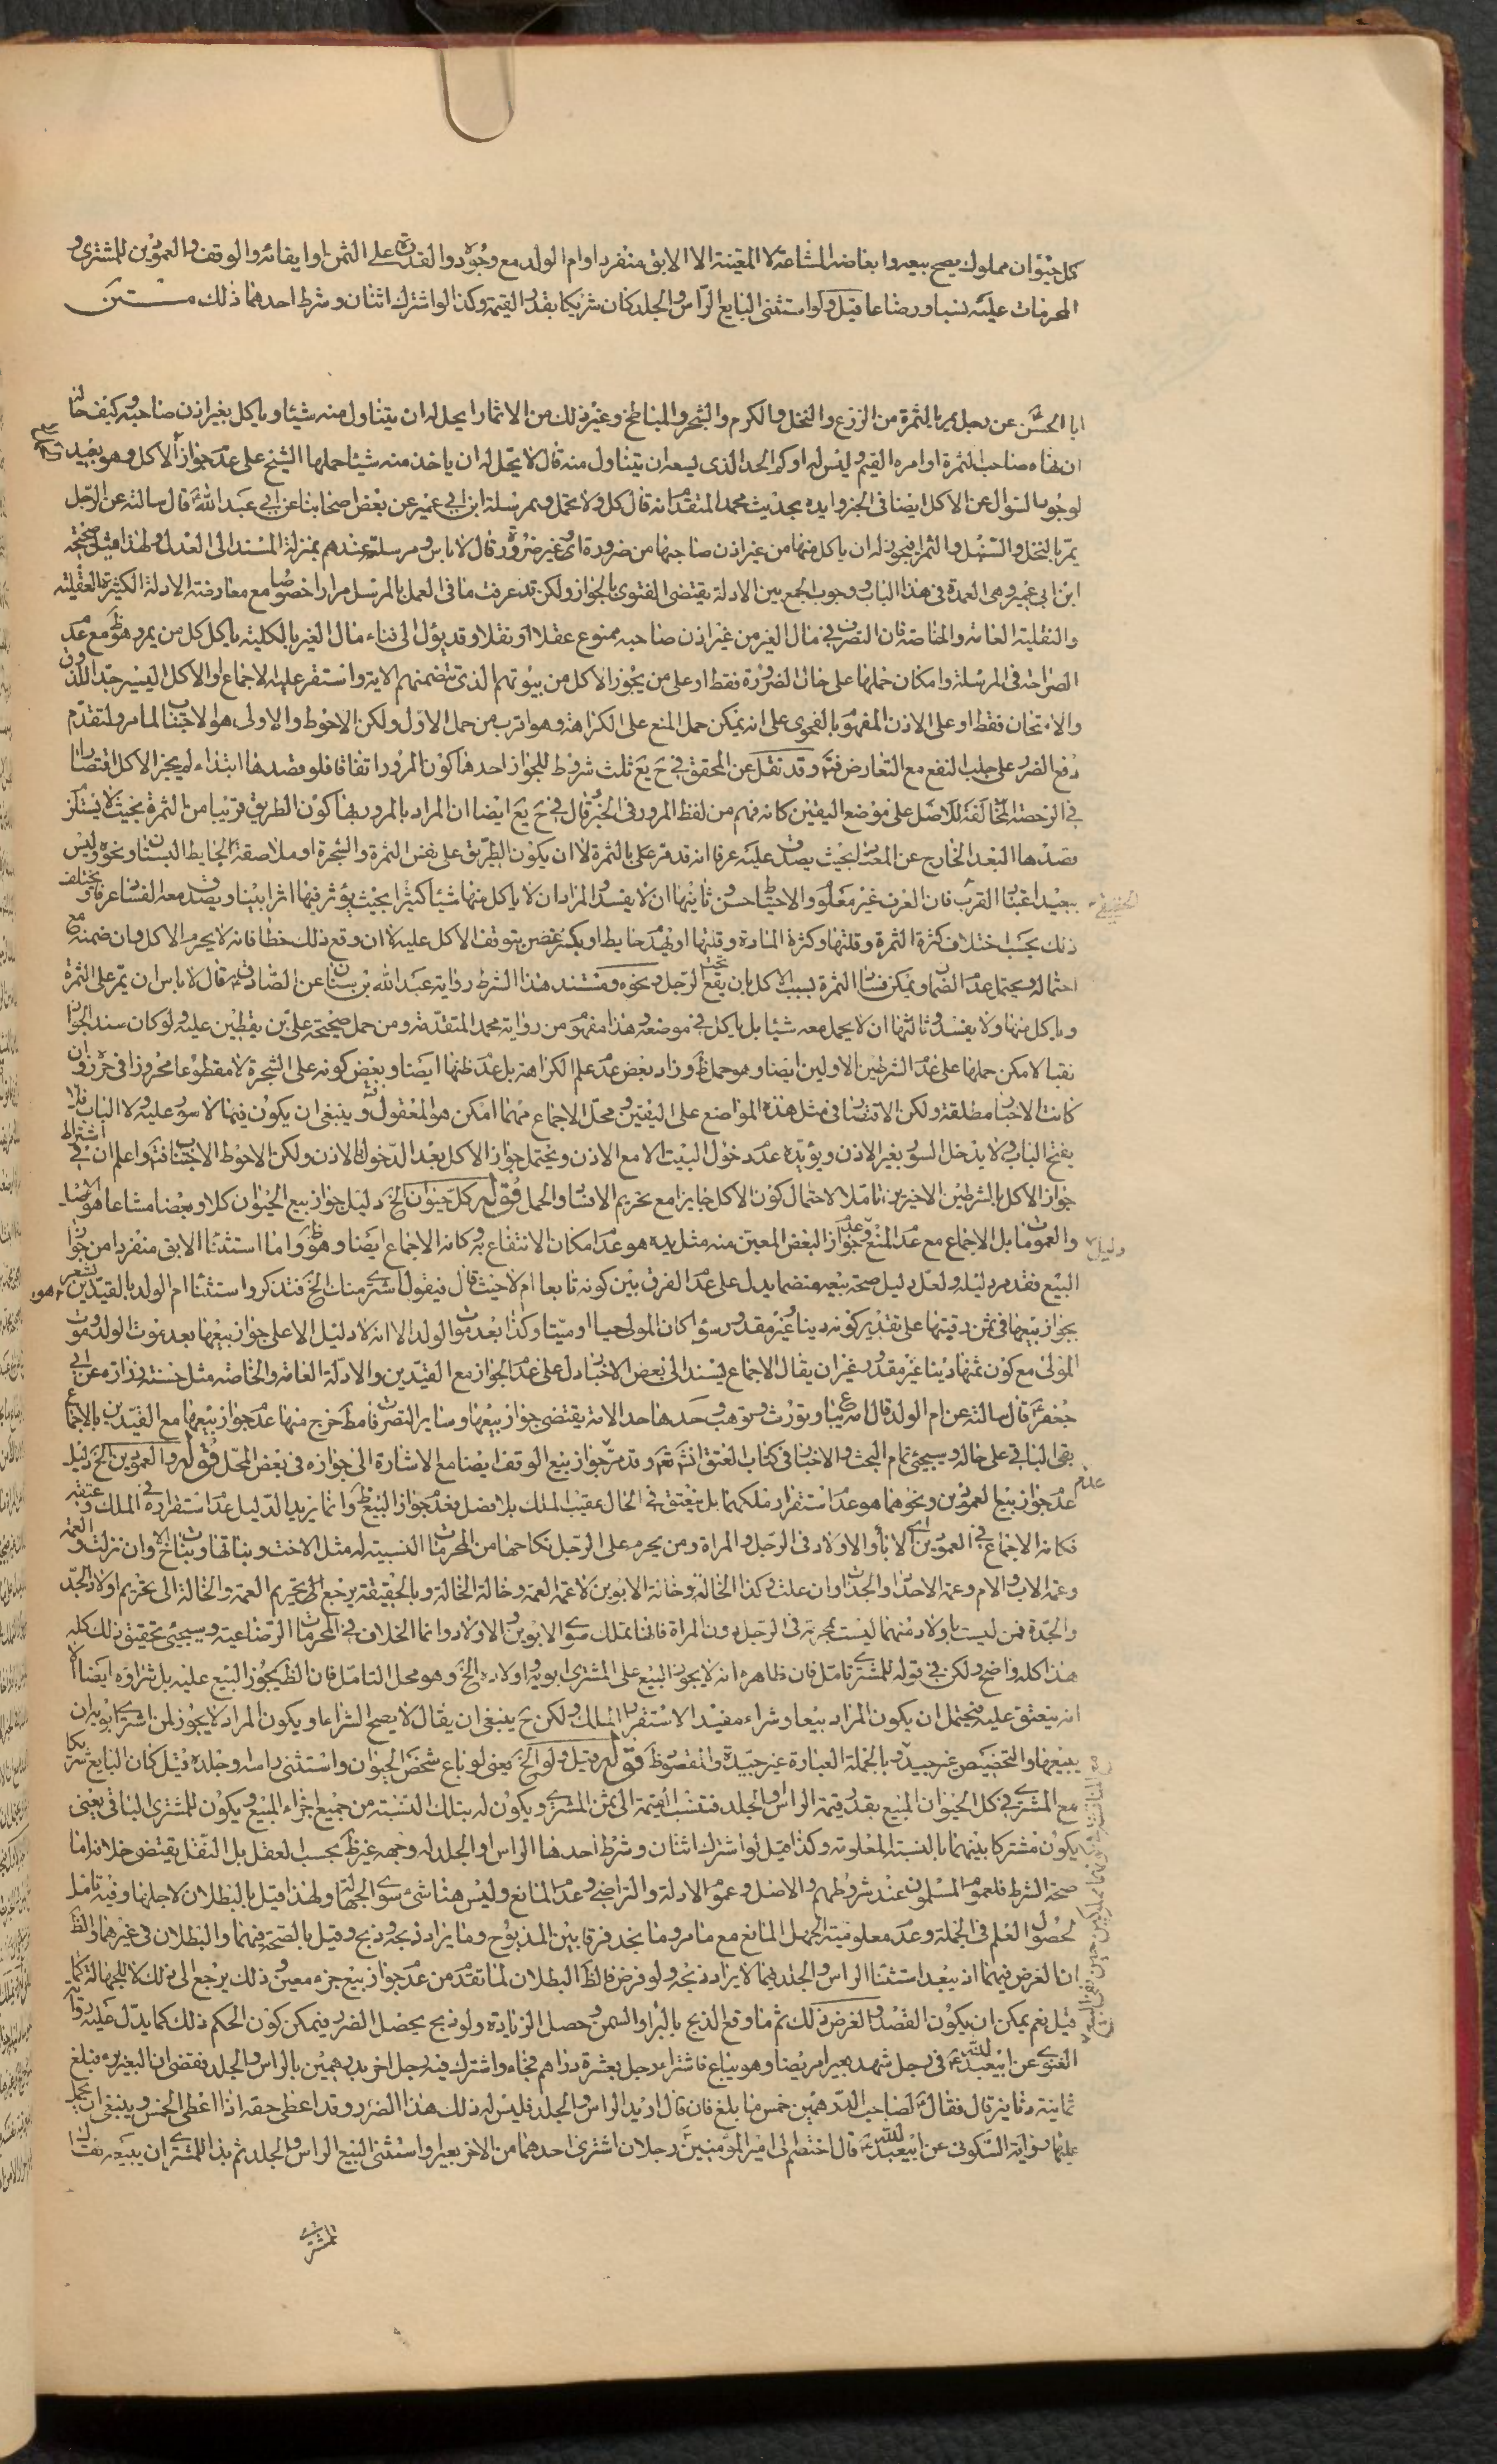 كل حيوان مملوك يصح بيعه وابعاضه المشاعة لا المعينة الا الابق منفردا وام الولد مع وجوده والقدرة على الثمن او ايفائه والوقف والعمودين للمشتري و
المحرمات عليه نسبا ورضاعا قيل ولو استثنى البايع الراس والجلد كان شريكا بقدر القيمة وكذا لو اشترك اثنان وشرط احدهما ذلك
ابا الحسن عن رجل يمر بالثمرة من الزرع والنخل والكرم والشجر والمباطخ وغير ذلك من الاثمار ايحل له ان يتناول منه شيئا وياكل بغير اذن صاحبه وكيف حاله
ان نهاه صاحب الثمرة او امره القيم وليس له اوكم الحد الذي يسعه ان يتناول منه قال لا يحل له ان ياخذ منه شيئا حملها الشيخ على عدم جواز الاكل وهو بعيد
لوجود السؤال عن الاكل ايضا في الخبر وايده بحديث محمد المتقدم انه قال كل ولا تحمل وبمرسلة ابن ابي عمير عن بعض اصحابنا عن ابي عبد الله قال سالته عن الرجل
يمر بالنخل والسنبل والثمر افيجوز له ان ياكل منها من غير اذن صاحبها من ضرورة او غير ضرورة قال لا باس ومرسلته عندهم بمنزلة المسند الى العدل ولهذا قيل صحيحة
ابن ابي عمير وهي العمدة في هذا الباب ووجوب الجمع بين الادلة يقتضي الفتوى بالجواز ولكن قد عرفت ما في العمل بالمرسل مرارا خصوصا مع معارضته الادلة الكثيرة العقلية
والنقلية العامة والخاصة فان التصرف في مال الغير من غير اذن صاحبه ممنوع عقلا ونقلا وقد يؤل الى فناء مال الغير بالكلية ياكل كل من يمر وهو ظ مع عدم
الصراحة في المرسلة وامكان حملها على حال الضرورة فقط او على من يجوز الاكل من بيوتهم الذي تتضمنهم الاية واستقر عليه الاجماع او الاكل اليسير جدا للذوق
والامتحان فقط او على الاذن المفهوم بالفحوى على انه يمكن حمل المنع على الكراهة وهو اقرب من حمل الاول ولكن الاحوط والاولى هو الاجتناب لما مر ولتقدم
دفع الضرر على جلب النفع مع التعارض فتم وقد نقل عن المحقق في ح يع ثلث شروط للجواز احدها كون المرور اتفاقا فلو قصدها ابتداء لم يجز الاكل اقتصارا
في الرخصة المخالفة للاصل على موضع اليقين كانه فهم من لفظ المرور في الخبر قال في ح يع ايضا ان المراد بالمرور بها كون الطريق قريبا من الثمرة بحيث لا يستلزم
قصدها البعد الخارج عن المعتاد بحيث يصدق عليه عرفا انه قد مر على بالثمرة لا ان يكون الطريق على نفس الثمرة والشجرة او ملاصقة الحايط البستان ونحوه وليس
ببعيد اعتبار القرب فان العرف غير معلوم والاحتياط حسن وثانيها ان لا يفسد والمراد ان لا ياكل منها شيئا كثيرا بحيث يؤثر فيها اثرا بينا ويصدق معه الفساد عرفا ويختلف
ذلك بحسب اختلاف كثرة الثمرة وقلتها وكثرة المارة وقلتها او يهدم حايطا ويكسر غصن يتوقف الاكل عليه لا ان وقع ذلك خطأ فانه لا يحرم الاكل وان ضمنه مع
احتماله ويحتمل عدم الضمان ويمكن فساد الثمرة بسبب الاكل بان يقع تحت الرجل ونحوه ومستند هذا الشرط رواية عبد الله بن سنان عن الصادق قال لا باس ان يمر على الثمرة
وياكل منها ولا يفسد وثالثها ان لا يحمل معه شيئا بل ياكل في موضعه وهذا مفهوم من رواية محمد المتقدمة ومن حمل صحيحة علي بن يقطين عليه ولو كان سند الجواز
نقيا لامكن حملها على عدم الشرطين الاولين ايضا وهو حمل ظ وزاد بعض عدم علم الكراهة بل عدم ظنها ايضا وبعض كونه على الشجرة لا مقطوعا محروزا في حرز وان
كانت الاخبار مطلقة ولكن الاقتصار في مثل هذه المواضع على اليقين ومحل الاجماع مهما امكن هو المعقول وينبغي ان يكون فيما لا سور عليه ولا الباب فلا
يفتح الباب ولا يدخل السور بغير الاذن ويؤيده عدم دخول البيت الا مع الاذن ويحتمل جواز الاكل بعد الدخول بلا اذن ولكن الاحوط الاجتناب فتم واعلم ان في اشتراط
جواز الاكل بالشرطين الاخيرين تاملا لاحتمال كون الاكل جايزا مع تحريم الافساد والحمل قوله كل حيوان الخ دليل جواز بيع الحيوان كلا وبعضا مشاعا هو الاصل
والعمومات بل الاجماع مع عدم المنع وعدم جواز البعض المعين منه مثل يده هو عدم امكان الانتفاع به وكانه الاجماع ايضا وهو ظ واما استثناء الابق منفردا من جواز
البيع فقد مر دليله ولعل دليل صحة بيعه منضما يدل على عدم الفرق بين كونه تابعا ام لا حيث قال فيقول اشتري منك الخ فتذكر واستثناء ام الولد بالقيدين يشعر
بجواز بيعها في ثمن رقبتها على تقدير كونه دينا وغير مقدور سواء كان المولى حيا او ميتا وكذا بعد موت الولد الا انه لا دليل الا على جواز بيعها بعد موت الولد وموت
المولى مع كون ثمنها دينا غير مقدور غير ان يقال الاجماع يستند الى بعض الاخبار دل على عدم الجواز مع القيدين والادلة العامة والخاصة مثل حسنة زرارة عن ابي
جعفر قال سالته عن ام الولد قال امة تباع وتورث وتوهب وحدها حد الامة يقتضي جواز بيعها وساير التصرفات فيها مط خرج منها عدم جواز بيعها مع القيدين بالاجماع
بقى الباقي على حاله وسيجئ تمام البحث والاخبار في كتاب العتق انش تع وقد مر جواز بيع الوقف ايضا مع الاشارة الى جوازه في بعض المحل قوله والعمودين الخ دليل
عدم جواز بيع العمودين ونحوهما هو عدم استقرار ملكهما بل ينعتق في الحال عقيب الملك بلا فصل فعدم جواز البيع ظ وانما يزيد الدليل عدم استقراره في الملك وعتقه
فكانه الاجماع في العمودين اي الاباء والاولاد في الرجل والمراة ومن يحرم على الرجل نكاحها من المحرمات النسبية له مثل الاخت وبناتها وبنات الاخ وان نزلت والعمة
وعمة الاب والام وعمة الاجداد والجدات وان علت وكذا الخالة وخالة الابوين لا عمة العمة وخالة الخالة وبالحقيقة يرجع الى تحريم العمة والخالة الى تحريم اولاد الجد
والجدة فمن ليست باولاد منهما ليست بمحرمة في الرجل دون المراة فانها تملك سوى الابوين والاولاد وانما الخلاف في المحرمات الرضاعية وسيجئ تحقيق ذلك كله
هذا كله واضح ولكن في قوله للمشتري تامل فان ظاهره انه لا يجوز البيع على المشتري ابويه واولاده الخ وهو محل التامل فان الظ يجوز البيع عليه بل شراؤه ايضا الا
انه ينعتق عليه فيحتمل ان يكون المراد بيعا وشراء مفيدا لاستقرار الملك ولكن ح ينبغي ان يقال لا يصح الشراء او يكون المراد لا يجوز لمن اشترى ابويه ان
يبيعها والتخصيص غير جيد وبالجملة العبارة غير جيدة والمقصود ظ قوله وقيل ولو الخ يعني لو باع شخص الحيوان واستثنى راسه وجلده قيل كان البايع شريكا
مع المشتري في كل الحيوان المبيع بقدر قيمة الراس والجلد فتنسب القيمة الى ثمن المشتري ويكون له بتلك النسبة من جميع اجزاء المبيع ويكون للمشتري الباقي يعني
يكون مشتركا بينهما بالنسبة المعلومة وكذا قيل لو اشترك اثنان وشرط احدهما الراس او الجلد له وجهه غير ظ بحسب العقل بل النقل يقتضي خلافه اما
صحة الشرط فلعموم المسلمون عند شروطهم والاصل وعموم الادلة والتراضي وعدم المانع وليس هنا شئ سوى الجهالة ولهذا قيل بالبطلان لاجلها وفيه تامل
لحصول العلم في الجملة وعدم معلومية الجهل المانع مع ما مر وما يجد فرقا بين المذبوح وما يراد ذبحه وذبح وقيل بالصحة فيهما والبطلان في غيرهما والظ
ان الغرض فيهما اذ يبعد استثناء الراس والجلد فيما لا يراد ذبحه ولو فرض فالظ البطلان لما تقدم من عدم جواز بيع جزء معين وذلك يرجع الى ذلك لا للجهالة كما
قيل نعم يمكن ان يكون القصد والغرض ذلك ثم ما وقع الذبح بالبرأ والسمن وحصل الزيادة ولو ذبح يحصل الضرر فيمكن كون الحكم ذلك كما يدل عليه رواية
الغنوي عن ابي عبد الله في رجل شهد بعيرا مريضا وهو يباع فاشتراه رجل بعشرة دراهم فجاء واشترك فيه رجل اخر بدرهمين بالراس والجلد فقضى ان البعير برئ فبلغ
ثمانية دنانير قال فقال لصاحب الدرهمين خمس ما بلغ فان قال اريد الراس والجلد فليس له ذلك هذا الضرر وقد اعطى حقه اذا اعطى الخمس وينبغي ان يحمل
عليها رواية السكوني عن ابي عبد الله قال اختصم الى امير المؤمنين رجلان اشترى احدهما من الاخر بعيرا واستثنى البيع الراس والجلد ثم بدا للمشتري ان يبيعه فقال
المشتري